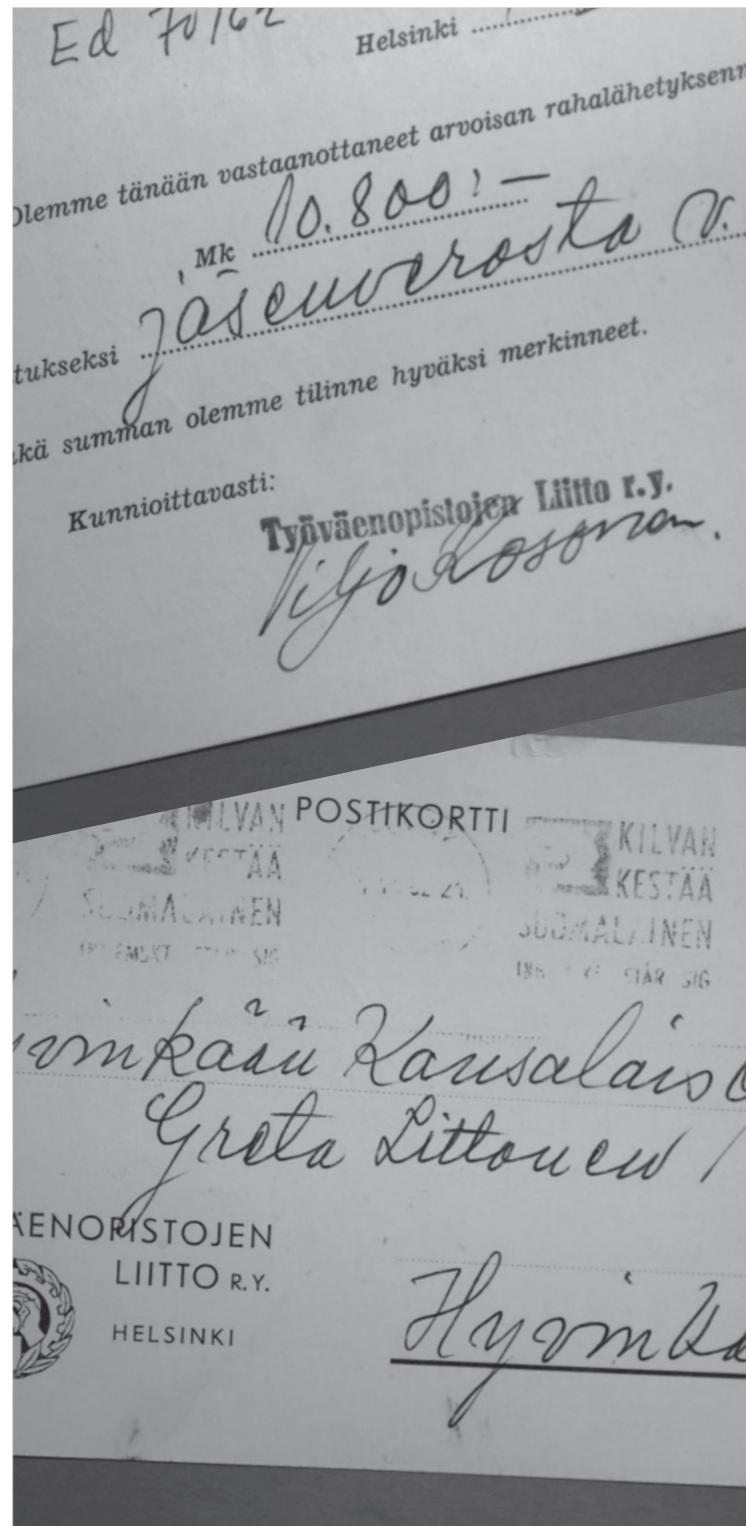 Ed 70/62
Helsinki
Olemme tänään vastaanottaneet arvoisan rahalähetyksenn
Mk 10.800:-
tukseksi jäsenverosta v.
kä summan olemme tilinne hyväksi merkinneet.
Kunnioittavasti:
Työväenopistojen Liitto r.y.
Viljo Kosonen.
POSTIKORTTI
KILVAN
KESTÄÄ
SUOMALAINEN
SIG
KILVAN
KESTÄÄ
SUOMALAINEN
STÅR SIG
vinkään Kansalaiso
Greta Littonen
ÄENOPISTOJEN
LIITTO R.Y.
HELSINKI
Hyvinkä